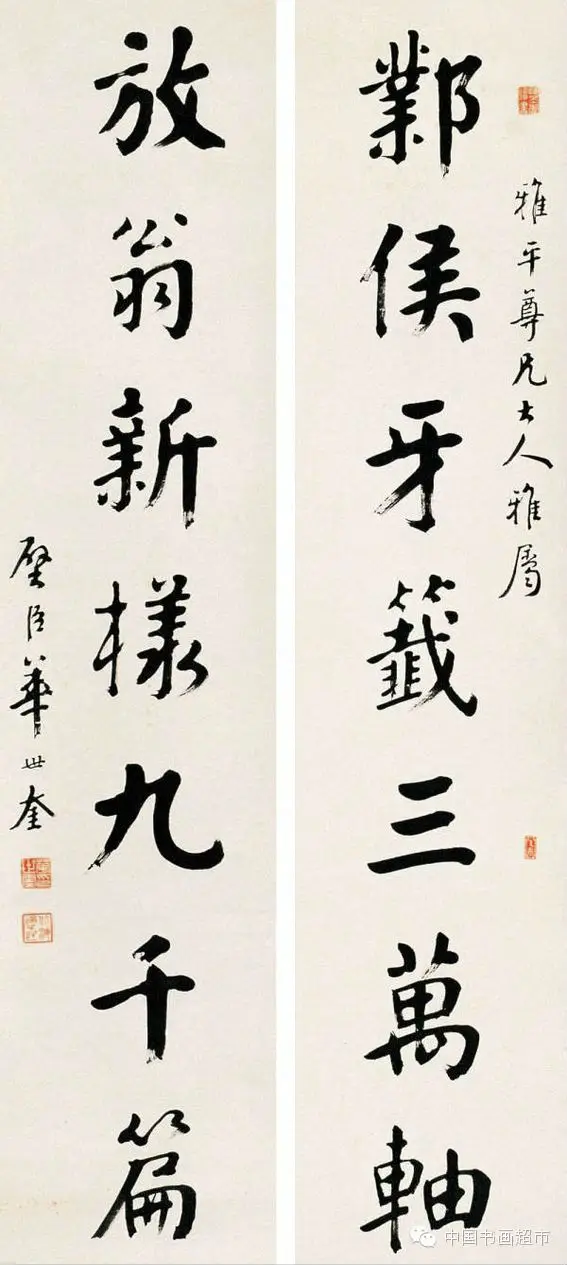 雅平尊兄大人雅屬
鄴侯牙籤三萬軸
放翁新樣九千篇
壁臣華世奎
中国书画超市